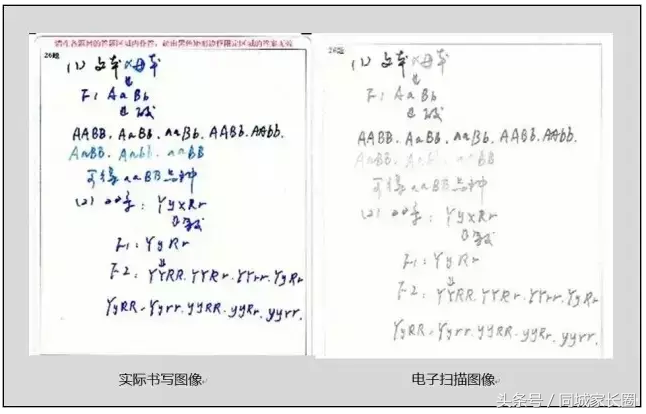 请在各题目的答题区域内作答，超出黑色矩形边框限定区域的答案无效
26题
(1) 父本×母本
F1: AaBb
AABB. AaBb. aaBb. AABb. AAbb.
AaBB. Aabb. aaBB
可得aaBB品种
(2) 亲本: Yy×Rr
F1: YyRr
F2: YYRR. YYRr. YYrr. YyRr
YyRR. Yyrr. yyRR. yyRr. yyrr.
实际书写图像
26题
(1) 父本×母本
F1: AaBb
AABB. AaBb. aaBb. AABb. AAbb.
AaBB. Aabb. aaBB
可得aaBB品种
Yy×Rr
F1: YyRr
F2: YYRR. YYRr. YYrr. YyRr
YyRR. Yyrr. yyRR. yyRr. yyrr.
电子扫描图像
头条号 / 同城家长圈